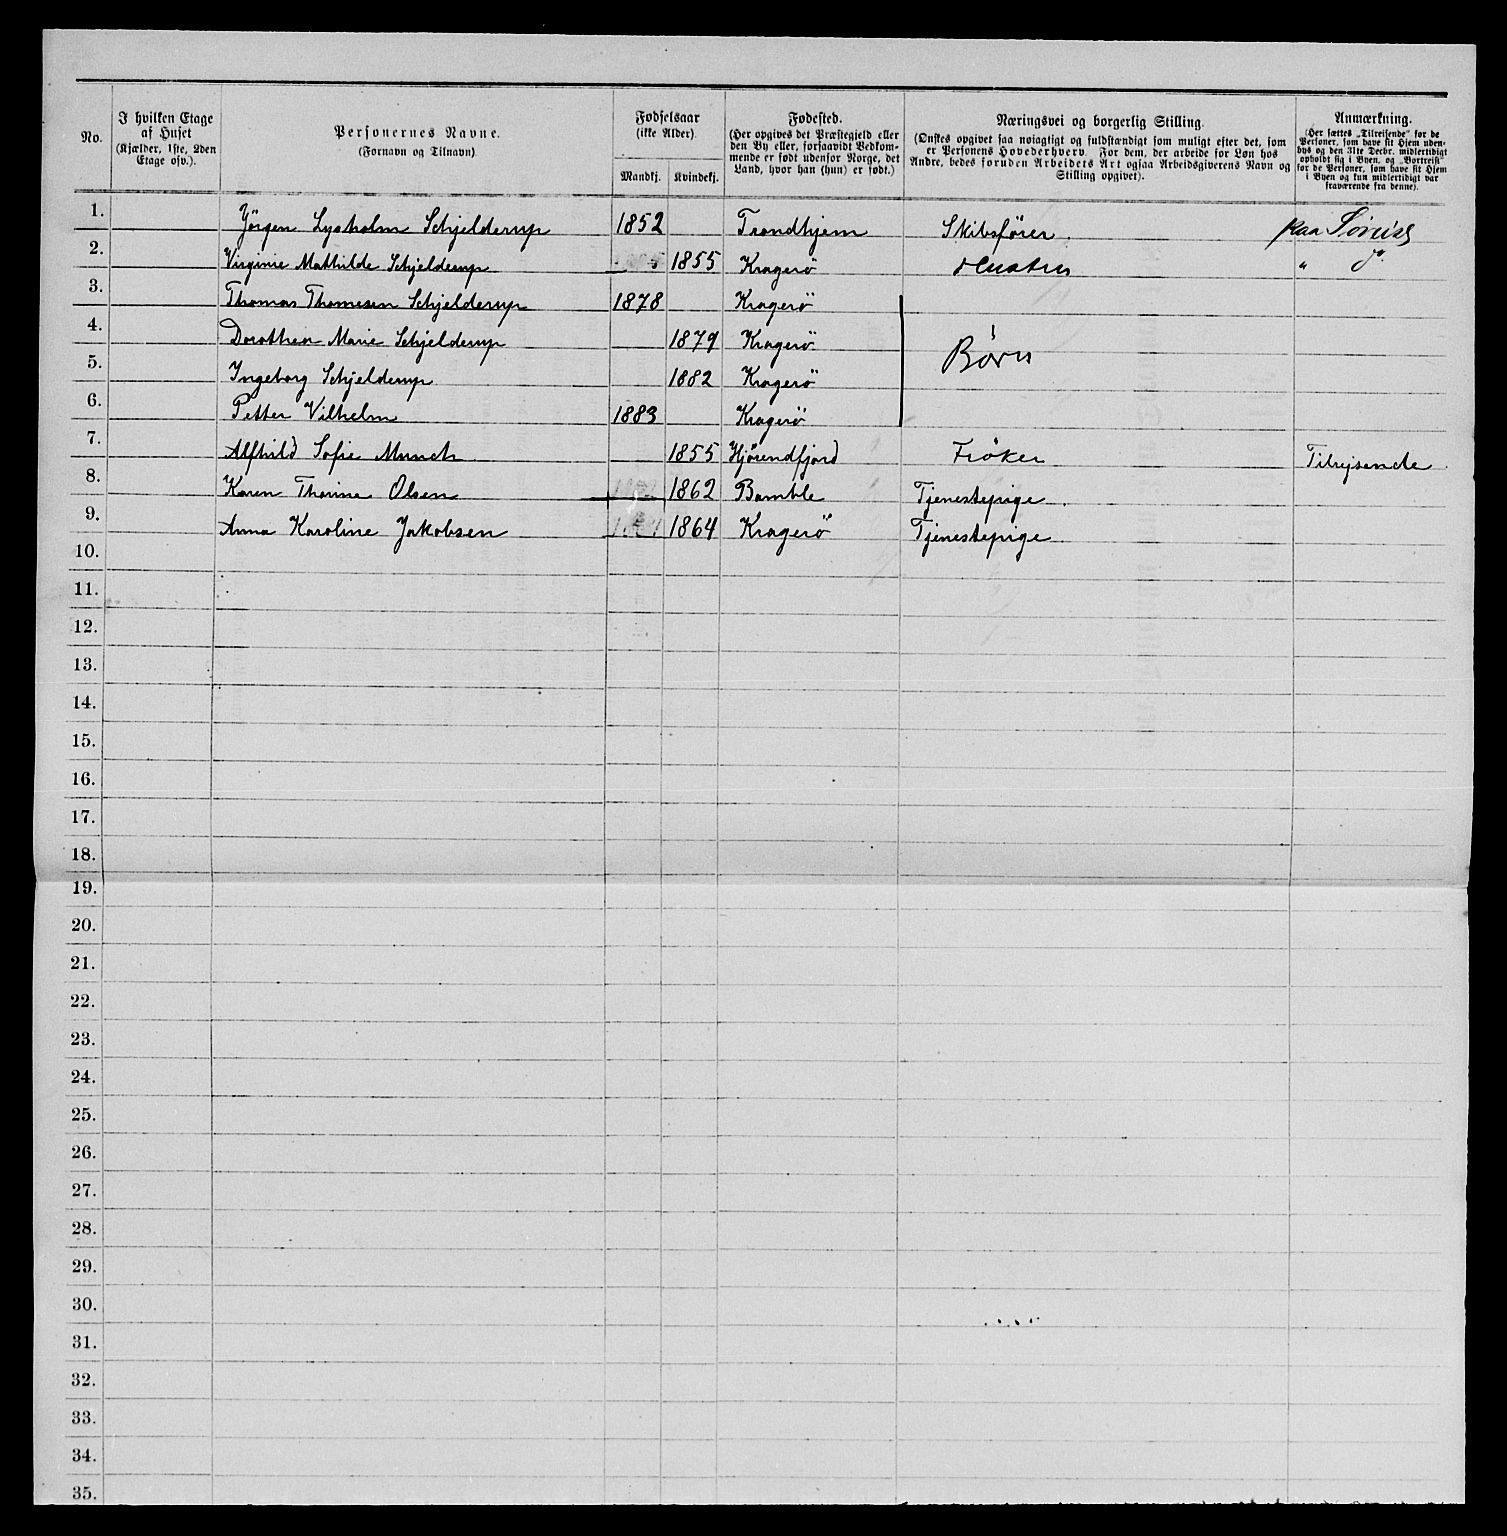 No.
I hvilken Etage
af Huset
(Kjælder, 1ste, 2den
Etage osv.).
Personernes Navne.
(Fornavn og Tilnavn).
Fødselsaar
(ikke Alder).
Mandkj. Kvindekj.
Fødested.
(Her opgives det Præstegjeld eller
den By eller, forsaavidt Vedkom-
mende er født udenfor Norge, det
Land, hvor han (hun) er født.)
Næringsvei og borgerlig Stilling.
(Ønskes opgivet saa nøiagtigt og fuldstændigt som muligt efter det, som
er Personens Hovederhverv. For dem, der arbeide for Løn hos
Andre, bedes foruden Arbeidets Art ogsaa Arbeidsgiverens Navn og
Stilling opgivet).
Anmærkning.
(Her sættes „Tilreisende“ for de
Personer, som have sit Hjem uden-
bys og den 31te Decbr. midlertidigt
opholdt sig i Byen, og „Bortreist“
for de Personer, som have sit Hjem
i Byen og kun midlertidigt var
fraværende fra denne).
1. Jörgen Lysholm Schjelderup 1852 Trondhjem Skibsfører paa Søreise
2. Virginie Mathilde Schjelderup 1855 Kragerö Hustru " do.
3. Thomas Thomesen Schjelderup 1878 Kragerö
4. Dorothea Marie Schjelderup 1879 Kragerö Børn
5. Ingeborg Schjelderup 1882 Kragerö
6. Petter Vilhelm 1883 Kragerö
7. Alfhild Sofie Munch 1855 Hjörendfjord Fröken Tilrejsende
8. Karen Thorine Olsen 1862 Bamble Tjenestepige
9. Anna Karoline Jakobsen 1864 Kragerö Tjenestepige
10.
11.
12.
13.
14.
15.
16.
17.
18.
19.
20.
21.
22.
23.
24.
25.
26.
27.
28.
29.
30.
31.
32.
33.
34.
35.